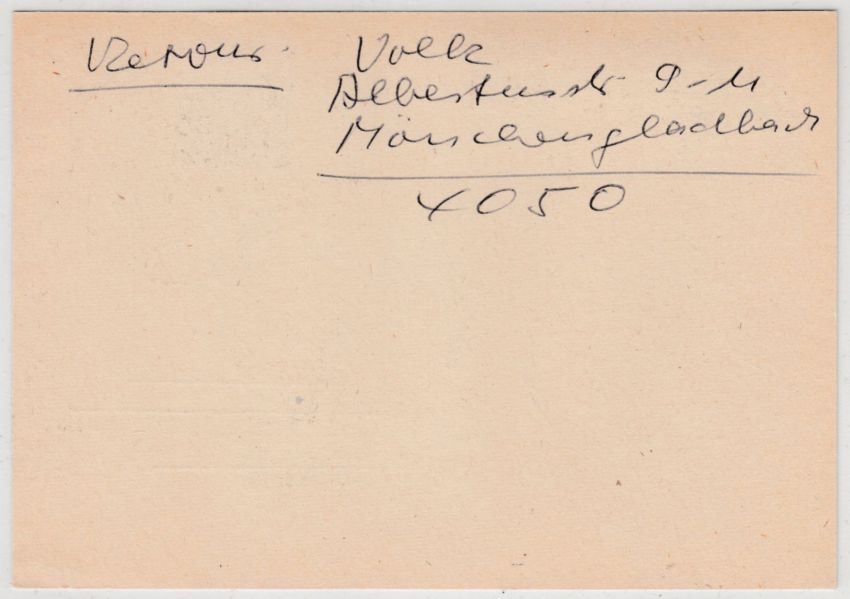 Retour. Volk
Albertusstr 9-11
Mönchengladbach
4050